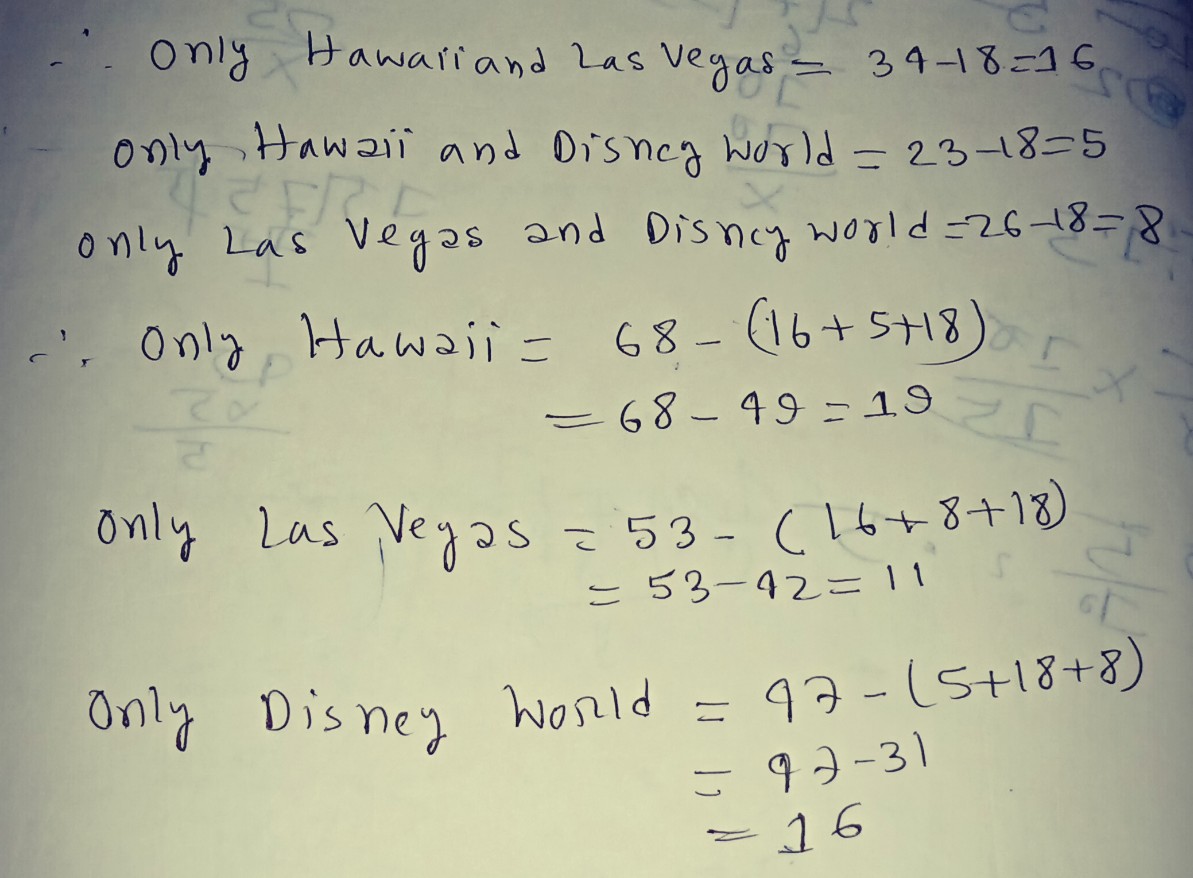 ∴ Only Hawaii and Las Vegas = 34-18=16
only Hawaii and Disney World = 23-18=5
only Las Vegas and Disney world =26-18= 8
∴ Only Hawaii = 68 - (16+5+18)
= 68 - 49 = 19
Only Las Vegas = 53 - (16+8+18)
= 53-42= 11
Only Disney World = 47-(5+18+8)
= 47-31
= 16